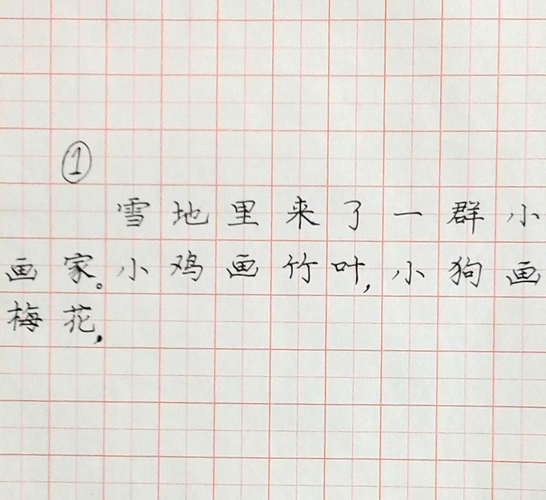 ①
雪地里来了一群小
画家。小鸡画竹叶,小狗画
梅花,